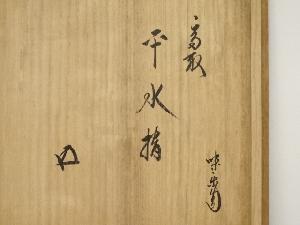 高取
平水指
味楽窯